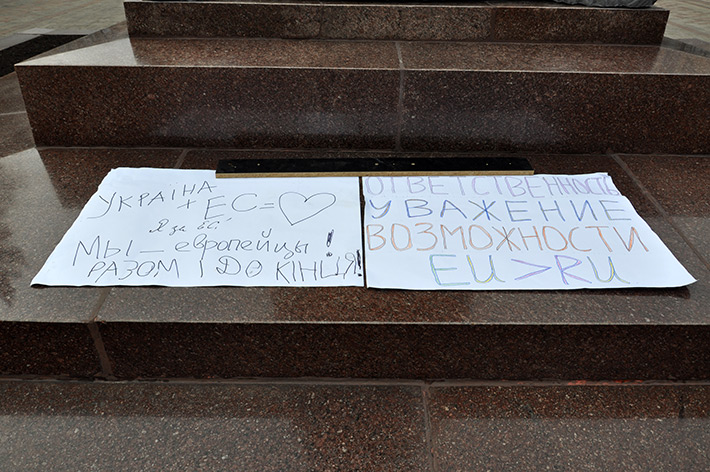 УКРАЇНА
+ ЕС = ♡
Я за ЄС
МЫ – европейцы!
РАЗОМ І ДО КІНЦЯ!
ОТВЕТСТВЕННОСТЬ
УВАЖЕНИЕ
ВОЗМОЖНОСТИ
EU > RU